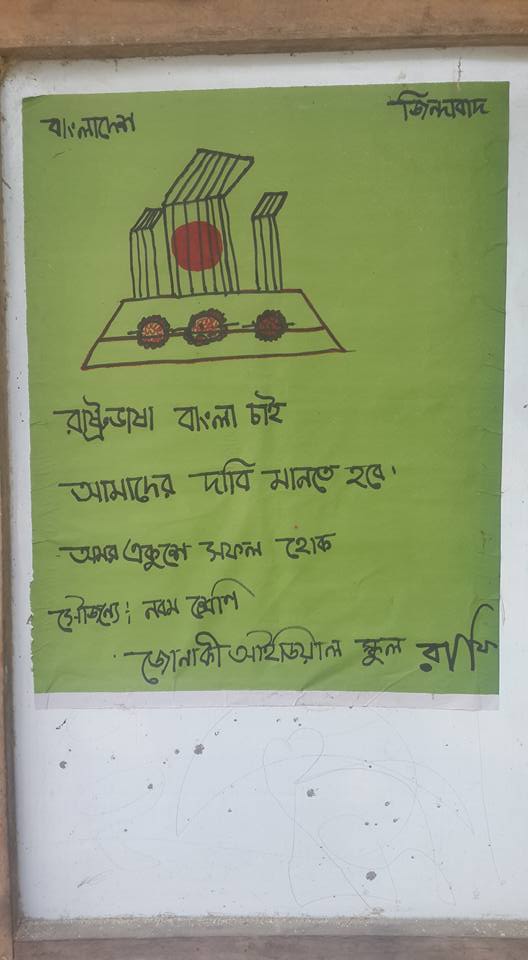 বাংলাদেশ জিন্দাবাদ
রাষ্ট্রভাষা বাংলা চাই
আমাদের দাবি মানতে হবে।
অমর একুশে সফল হোক
সৌজন্যে: নবম শ্রেণি
জোনাকী আইডিয়াল স্কুল রাফি